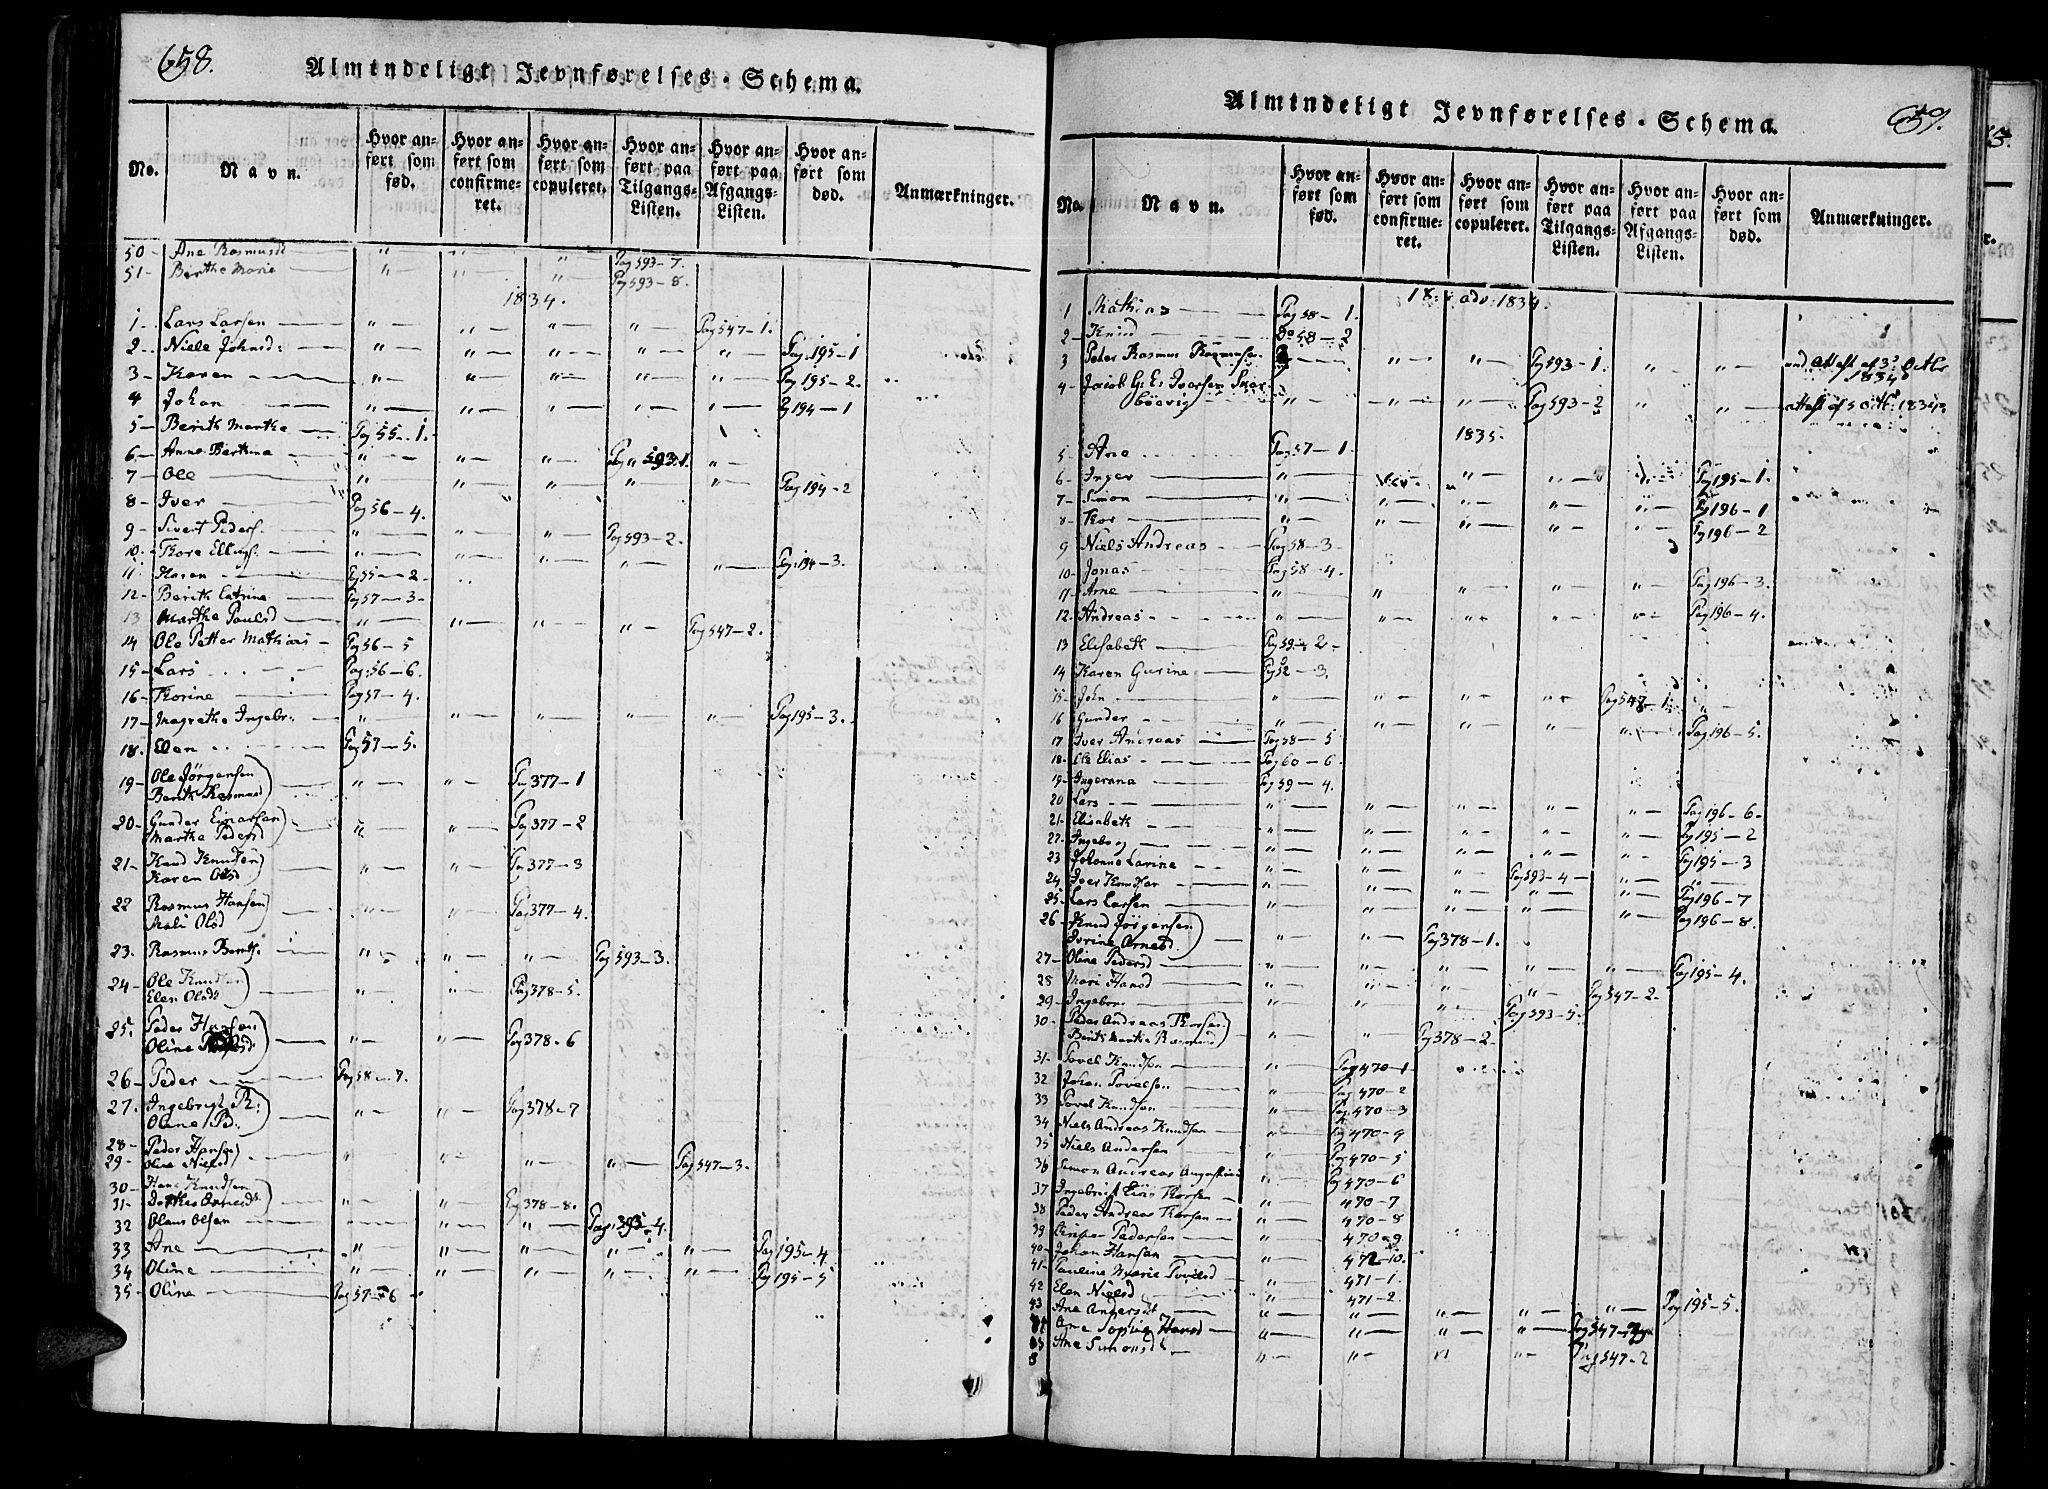 658.
Almindeligt Jevnførelses-Schema.
No. | Navn. | Hvor anført som fød. | Hvor anført som confirmeret. | Hvor anført som copuleret. | Hvor anført paa Tilgangs-Listen. | Hvor anført paa Afgangs-Listen. | Hvor anført som død. | Anmærkninger.
50 - Ane Rasmusd " " " Pag 593-7.
51 - Berthe Marie " " " Pag 593-8.
1834.
1 - Lars Larsen " " " " Pag 547-1.
2 - Niels Johnsd: " " " " " Pag. 195-1
3 - Karen " " " " " Pag 195-2.
4 Johan " " " " " Pg 194-1
5 - Berith Marthe Pag 55-1.
6 - Anne Bertine " " " Pag 593.1. "
7 - Ole " " " " " Pag 194-2
8 - Iver Pag 56-4.
9 - Sivert Peders. " " " Pag 593-2.
10 - Thore Ellings. " " " " " Pag. 194-3.
11 - Karen Pg 55-2.
12 - Berith Catrine Pag 57-3-
13 Marthe Paulsd " " " " Pag 547-2.
14 Ole Petter Mathias - Pag 56-5
15 - Lars Pag. 56-6.
16 - Thorine Pag 57-4.
17 - Magrethe Ingebr: " " " " " Pag 195-3.
18. Elen Pag 57-5.
19 - Ole Jørgensen
Berith Rasmusd " " Pag 377-1
20 - Gunder Einarsen
Marthe Pedersd " " Pag 377-2
21 - Knud Knudsen
Karen Olsd " " Pag 377-3
22 Rasmus Hansen
Mali Olsd " " Pag 377-4.
23. Rasmus Benth. " " " Pag 593-3.
24 - Ole Knudsen
Elen Olsd " " Pag 378-5.
25. Peder Hansen
Oline " " Pag 378-6
26 - Peder Pag 58-7.
27. Ingebrigt R:
Oline Pd: " " Pag 378-7
28 - Peder Hansen
29 - Oline Nielsd " " " " Pag 547-3.
30 - Hans Knudsen
31 - Dorthe Arnesd " " Pag 378-8.
32 Olaus Olsen " " Pag. 393-4.
33 Ane " " " " " Pag 195-4
34 Oline " " " " " Pg 195-5
35 - Oline Pag 57-6
659.
Almindeligt Jevnførelses-Schema.
No. | Navn. | Hvor anført som fød. | Hvor anført som confirmeret. | Hvor anført som copuleret. | Hvor anført paa Tilgangs-Listen. | Hvor anført paa Afgangs-Listen. | Hvor anført som død. | Anmærkninger.
1834.
1 Mathias Pag 58-1.
2 - Knud Do 58-2
3 Peder Rasmus Rasmusen " " Pag 593-1. " " Attest af 3: Octbr 1834
4 - Jacob G: E: Iversen " " " Pag 593-2 " " attest af 5 Octb: 1834
1835.
5 - Ane Pag 57-1
6 - Inger " " " " " Pag 195-1.
7 - Simon " " " " " Pg 196-1
8 - Thor " " " " " Pg 196-2
9 Niels Andreas Pag 58-3
10 - Jonas Pag 58-4.
11 - Arne " " " " " Pag 196-3.
12 - Andreas " " " " " Pag 196-4.
13 Elisabeth Pag 59-2
14 Karen Gurine Pg 52-3.
15 - John " " " " Pag 547-1.
16 Gunder " " " " " Pag 196-5.
17 Iver Andreas Pag 58-5
18 - Ole Elias Pag 60-6.
19 - Ingerana Pag 59-4.
20 Lars " " " " " Pag 196-6-
21 - Elisabeth " " " " " Pg 195-2
22 - Ingeborg " " " " " Pag 195-3
23 Johanne Larine " " " Pag 593-4 "
24 Iver Knudsen " " " " " Pag 196-7
25 - Lars Larsen " " " " " Pag 196-8.
26 - Knud Jørgensen
Iverine Arnesd " " Pag 378-1.
27 - Oline Pedersd " " " " " Pag 195-4.
28 Mari Hansd " " " " Pag 547-2.
29 - Ingebor " " " Pag 593-5.
30 - Peder Andreas Thorsen
Berith Marthe Rasmusd " " Pag 378-2.
31 - Povel Knudsen " Pag 470-1
32 Johan Povelsen " Pag 470-2
33 Povel Knudsen " Pag 470-3
34 Niels Andreas Knudsen " Pg 470-4
35 Niels Andersen " Pag 470-5
36 Simon Andreas " Pg 470-6
37 Ingebrigt Thorsen " 470-7
38 Peder Andreas Thorsen " 470-8
39 Pedersen " 470-9
40 - Johan Hansen " 472-10.
41 - Pauline Marie Povelsd " 471-1.
42 Elen Nielsd " 471-2.
43 Ane Andersdt " " " " " Pag 195-5.
Ane Sophia Hansd " " " " Pag 547-
Ane Simonsd " " " " Pag 547-2